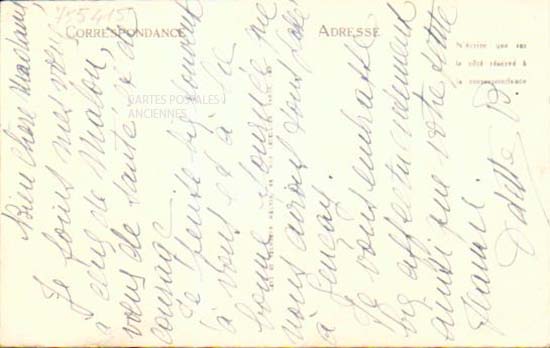 755415
CORRESPONDANCE
ADRESSE
N'écrire que sur
le côté réservé à
la correspondance
CARTES POSTALES
ANCIENNES
Bien chère Madame,
Je joins mes vœux
à ceux de Maton,
vœux de santé et de
courage.
Je pense si souvent
à vous et à la
bonne journée que
nous avons tous passé
à
Je vous embrasse
bien affectueusement
ainsi que votre petite
Odette